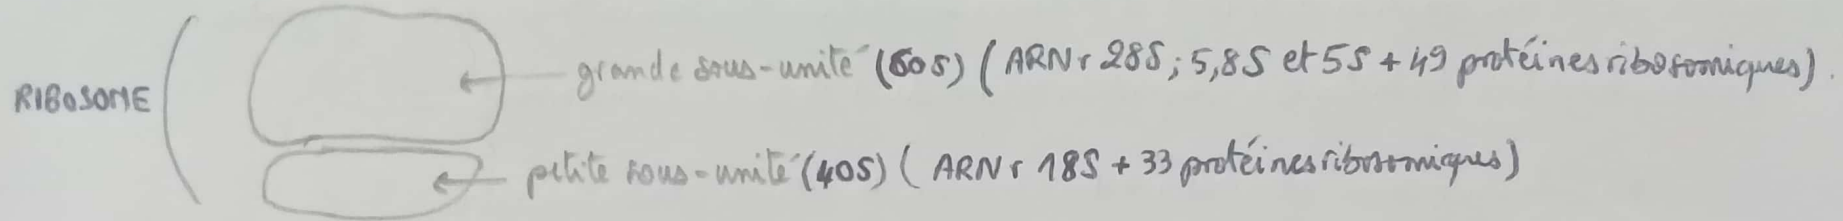 grande sous-unité (60S) (ARNr 28S; 5,8S et 5S + 49 protéines ribosomiques).
RIBOSOME
petite sous-unité (40S) (ARNr 18S + 33 protéines ribosomiques)